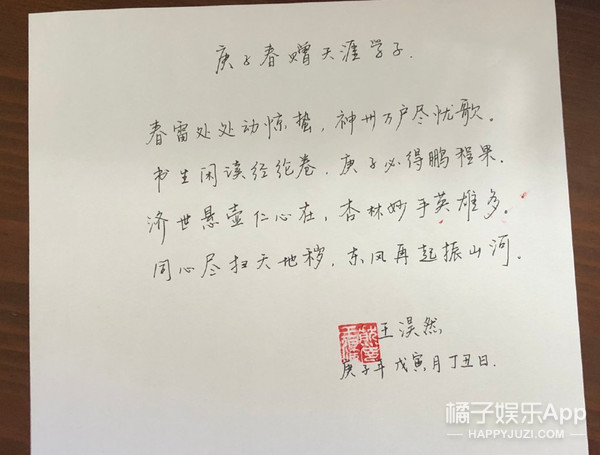 庚子春赠天涯学子.
春雷处处动惊蛰，神州万户尽忧歌。
书生闲读经纶卷，庚子必得鹏程果。
济世悬壶仁心在，杏林妙手英雄多。
同心尽扫天地秽，东风再起振山河。
王淏然
庚子年 戊寅月 丁丑日.
橘子娱乐App
HAPPYJUZI.COM